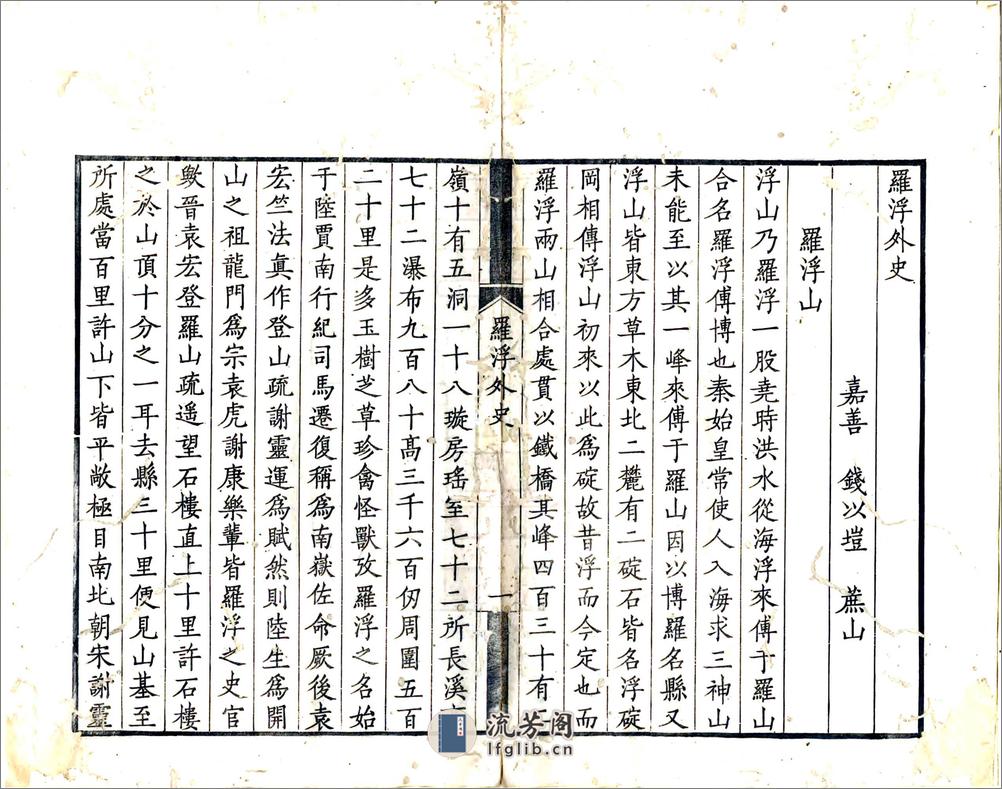 羅浮外史
嘉善 錢以塏 蔗山
羅浮山
浮山乃羅浮一股堯時洪水從海浮來傅于羅山
合名羅浮傅博也秦始皇常使人入海求三神山
未能至以其一峰來傅于羅山因以博羅名縣又
浮山皆東方草木東北二麓有二碇石皆名浮碇
岡相傳浮山初來以此爲碇故昔浮而今定也而
羅浮兩山相合處貫以鐵橋其峰四百三十有
羅浮外史
一
嶺十有五洞一十八璇房瑤至七十二所長溪
七十二瀑布九百八十高三千六百仞周圍五百
二十里是多玉樹芝草珍禽怪獸攷羅浮之名始
于陸賈南行紀司馬遷復稱爲南嶽佐命厥後袁
宏竺法眞作登山疏謝靈運爲賦然則陸生爲開
山之祖龍門爲宗袁虎謝康樂輩皆羅浮之史官
歟晉袁宏登羅山疏遥望石樓直上十里許石樓
之於山頂十分之一耳去縣三十里便見山基至
所處當百里許山下皆平敞極目南北朝宋謝靈
流芳阁
lfglib.cn